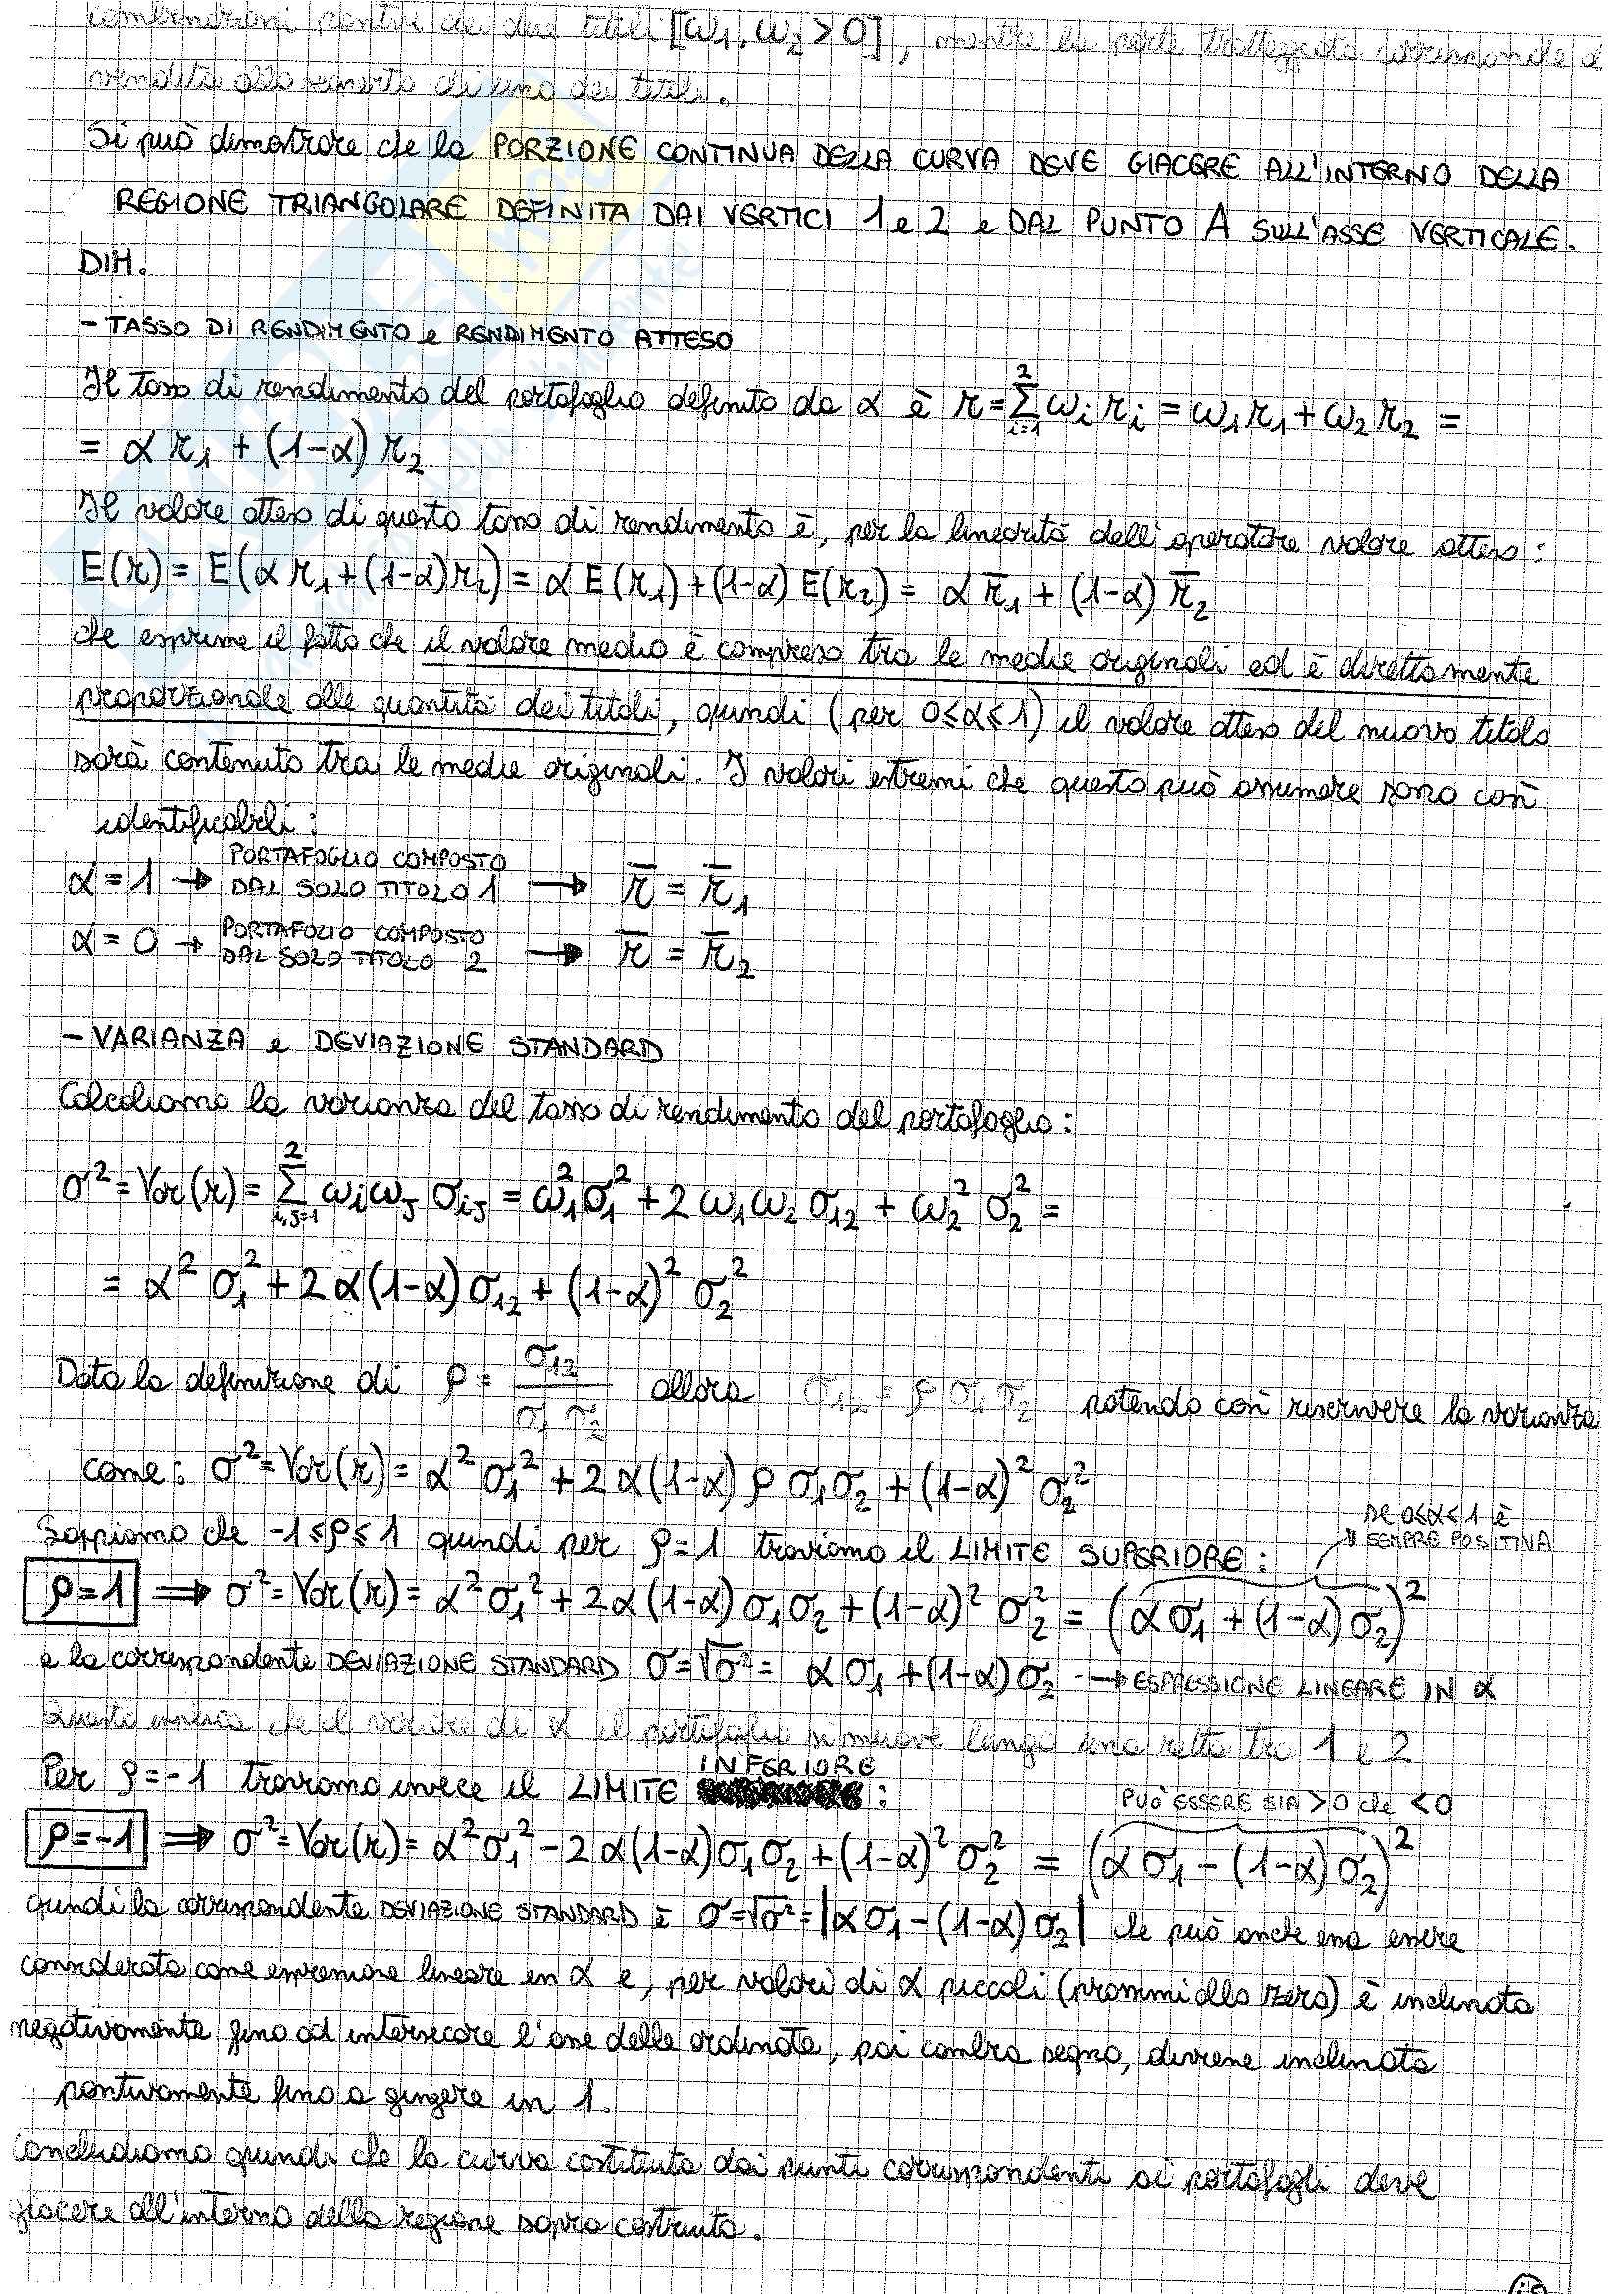 combinazioni positive dei due titoli [ω₁, ω₂ > 0], mentre la parte tratteggiata corrisponde a
vendita allo scoperto di uno dei titoli.
Si può dimostrare che la PORZIONE CONTINUA DELLA CURVA DEVE GIACERE ALL'INTERNO DELLA
REGIONE TRIANGOLARE DEFINITA DAI VERTICI 1 e 2 e DAL PUNTO A SULL'ASSE VERTICALE.
DIM.
- TASSO DI RENDIMENTO e RENDIMENTO ATTESO
Il tasso di rendimento del portafoglio definito da α è r = Σ_{i=1}^{2} ω_i r_i = ω₁r₁ + ω₂r₂ =
= α r₁ + (1-α) r₂
Il valore atteso di questo tasso di rendimento è, per la linearità dell'operatore valore atteso:
E(r) = E(α r₁ + (1-α) r₂) = α E(r₁) + (1-α) E(r₂) = α r̄₁ + (1-α) r̄₂
che esprime il fatto che il valore medio è compreso tra le medie originali ed è direttamente
proporzionale alle quantità dei titoli, quindi (per 0≤α≤1) il valore atteso del nuovo titolo
sarà contenuto tra le medie originali. I valori estremi che questo può assumere sono così
identificabili:
α = 1 → PORTAFOGLIO COMPOSTO DAL SOLO TITOLO 1 → r̄ = r̄₁
α = 0 → PORTAFOLIO COMPOSTO DAL SOLO TITOLO 2 → r̄ = r̄₂
- VARIANZA e DEVIAZIONE STANDARD
Calcoliamo la varianza del tasso di rendimento del portafoglio:
σ² = Var(r) = Σ_{i,j=1}^{2} ω_i ω_j σ_ij = ω₁² σ₁² + 2 ω₁ ω₂ σ₁₂ + ω₂² σ₂² =
= α² σ₁² + 2 α(1-α) σ₁₂ + (1-α)² σ₂²
Data la definizione di ρ = σ₁₂ / (σ₁ σ₂) allora σ₁₂ = ρ σ₁ σ₂ potendo così riscrivere la varianza
come: σ² = Var(r) = α² σ₁² + 2 α(1-α) ρ σ₁ σ₂ + (1-α)² σ₂²
SE 0≤α≤1 è
SEMPRE POSITINA
Sappiamo che -1 ≤ ρ ≤ 1 quindi per ρ = 1 troviamo il LIMITE SUPERIORE:
ρ=1 ⟹ σ² = Var(r) = α² σ₁² + 2α(1-α) σ₁ σ₂ + (1-α)² σ₂² = (α σ₁ + (1-α) σ₂)²
e la corrispondente DEVIAZIONE STANDARD σ = √σ² = α σ₁ + (1-α) σ₂ → ESPRESSIONE LINEARE IN α
Questo implica che al variare di α il portafolio si muove lungo una retta tra 1 e 2
Per ρ = -1 troviamo invece il LIMITE INFERIORE:
PUÒ ESSERE SIA > 0 che < 0
ρ=-1 ⟹ σ² = Var(r) = α² σ₁² - 2 α(1-α) σ₁ σ₂ + (1-α)² σ₂² = (α σ₁ - (1-α) σ₂)²
quindi la corrispondente DEVIAZIONE STANDARD è σ = √σ² = |α σ₁ - (1-α) σ₂| che può anche essa essere
considerata come espressione lineare in α e, per valori di α piccoli (prossimi allo zero) è inclinata
negativamente fino ad intersecare l'asse delle ordinate, poi cambia segno, diviene inclinata
positivamente fino a gingere in 1.
Concludiamo quindi che la curva costituita dai punti corrispondenti ai portafogli deve
giacere all'interno della regione sopra costruita.